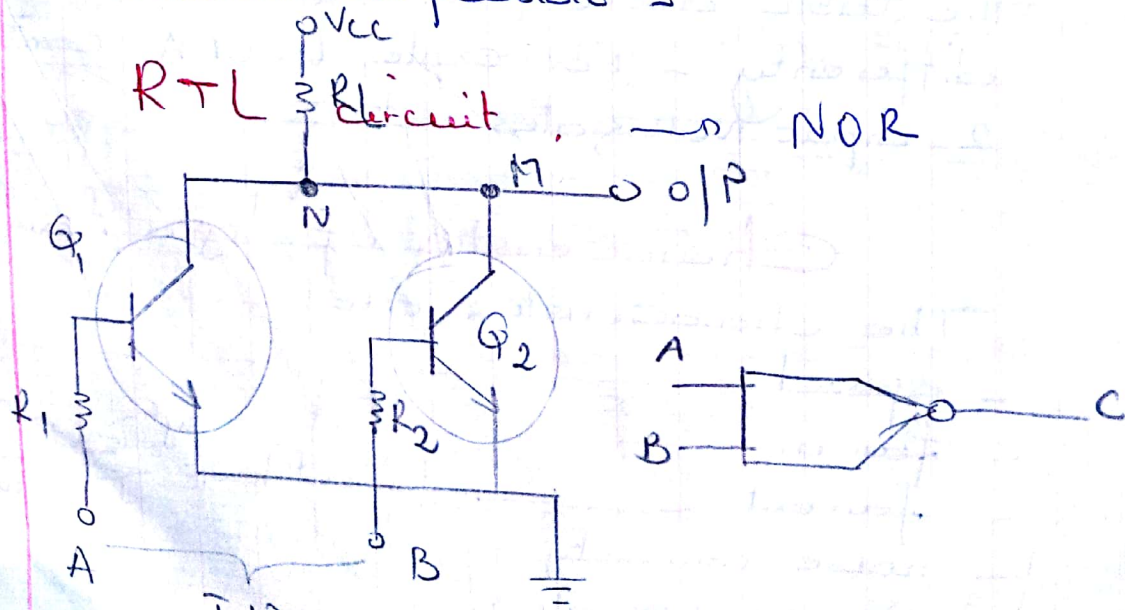 Vcc
RTL circuit. → NOR
RL
N
M
O/P
Q1
Q2
R1
R2
A
B
A
B
C